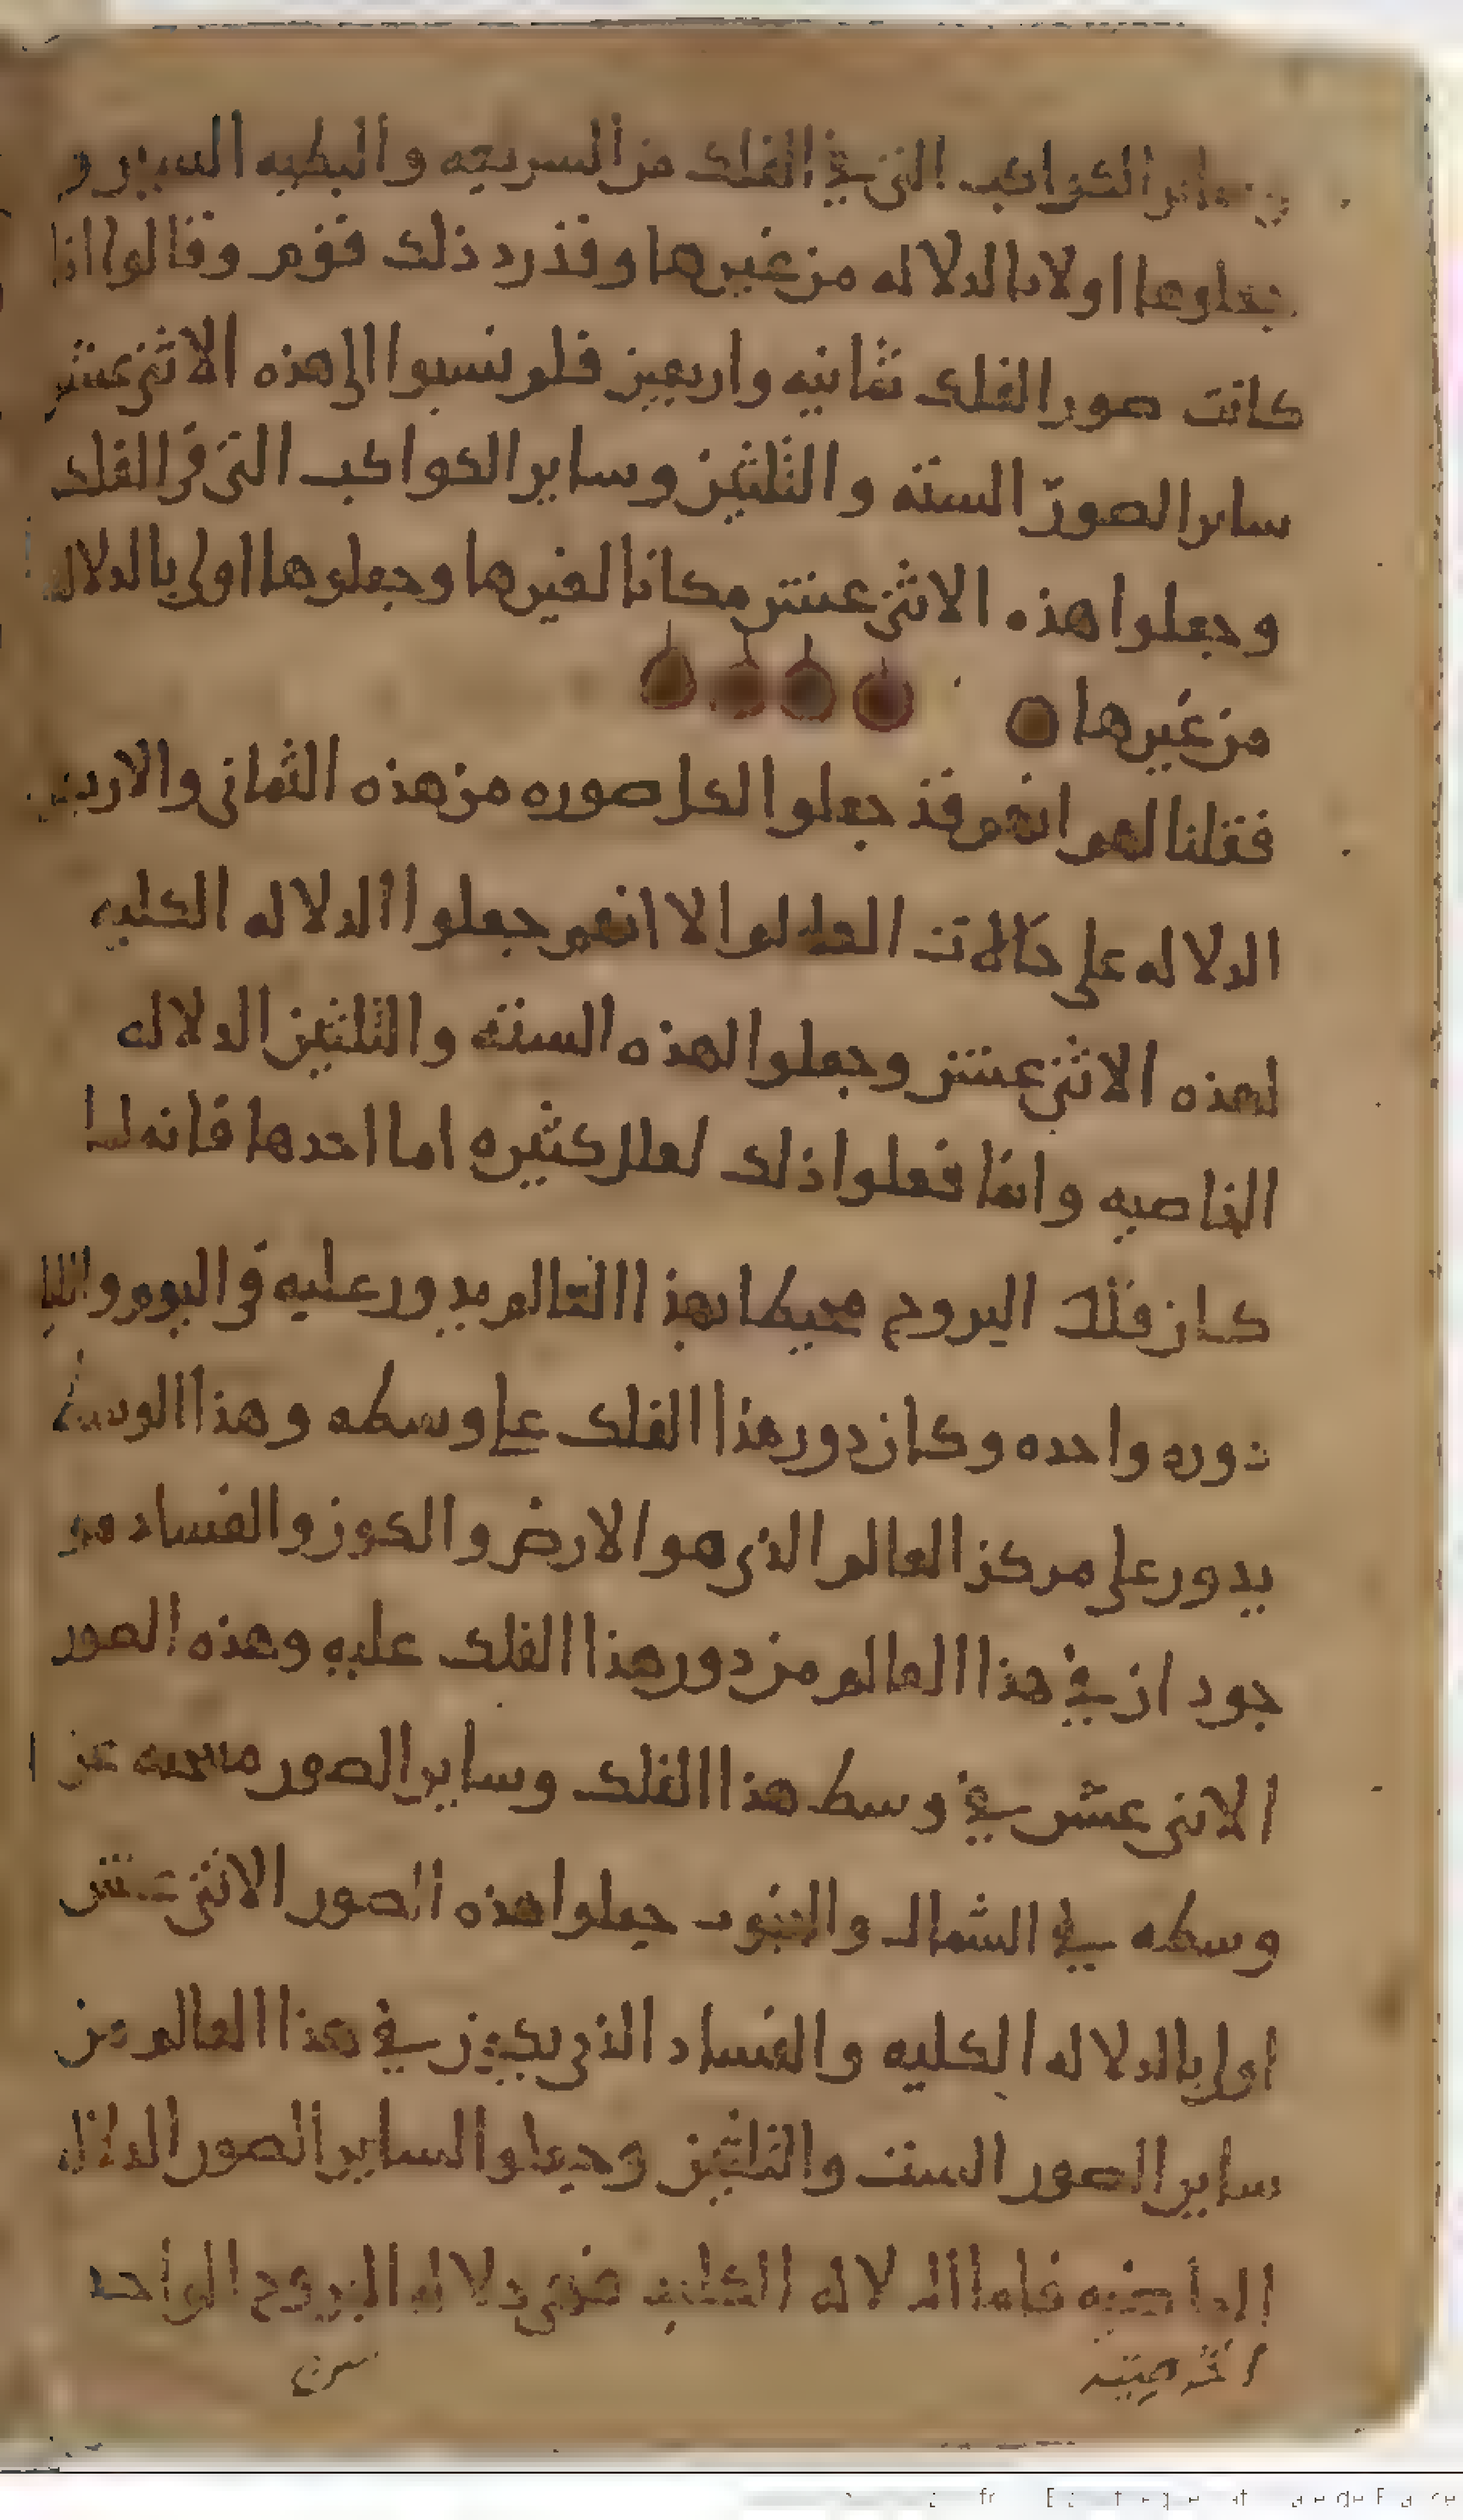 ساير الكواكب التي في الفلك من السريعه والبطيه السير و
جعلوها اولا بالدلاله من غيرها وقد رد ذلك قوم وقالوا انا
كانت صور الفلك ثمانيه واربعين فلم نسبوا الى هذه الاثنى عشر
ساير الصور السته والثلثين وساير الكواكب التي في الفلك
وجعلوا هذه الاثنى عشر مكانا لغيرها وجعلوها اولى بالدلاله
من غيرها
فقلنا لهم انهم قد جعلوا لكل صوره من هذه الثمانى والاربعين
الدلاله على حالات العالم الا انهم جعلوا الدلاله الكليه
لهذه الاثنى عشر وجعلوا لهذه السته والثلثين الدلاله
الخاصيه وانما فعلوا ذلك لعلل كثيره اما احدها فانه لما
كان فلك البروج محيطا بهذا العالم يدور عليه في اليوم والليله
دوره واحده وكان دور هذا الفلك على وسطه وهذا الوسط
يدور على مركز العالم الذي هو الارض والكون والفساد مو
جودان في هذا العالم من دور هذا الفلك عليه وهذه الصور
الاثنى عشر في وسط هذا الفلك وساير الصور منتحيه عن
وسطه في الشمال والجنوب جعلوا هذه الصور الاثنى عشر
اولى بالدلاله الكليه والفساد الذي يكون في هذا العالم من
ساير الصور الست والثلثين وجعلوا لساير الصور الدلاله
الخاصيه فاما الدلاله الكليه فهى دلاله البروج الواحد